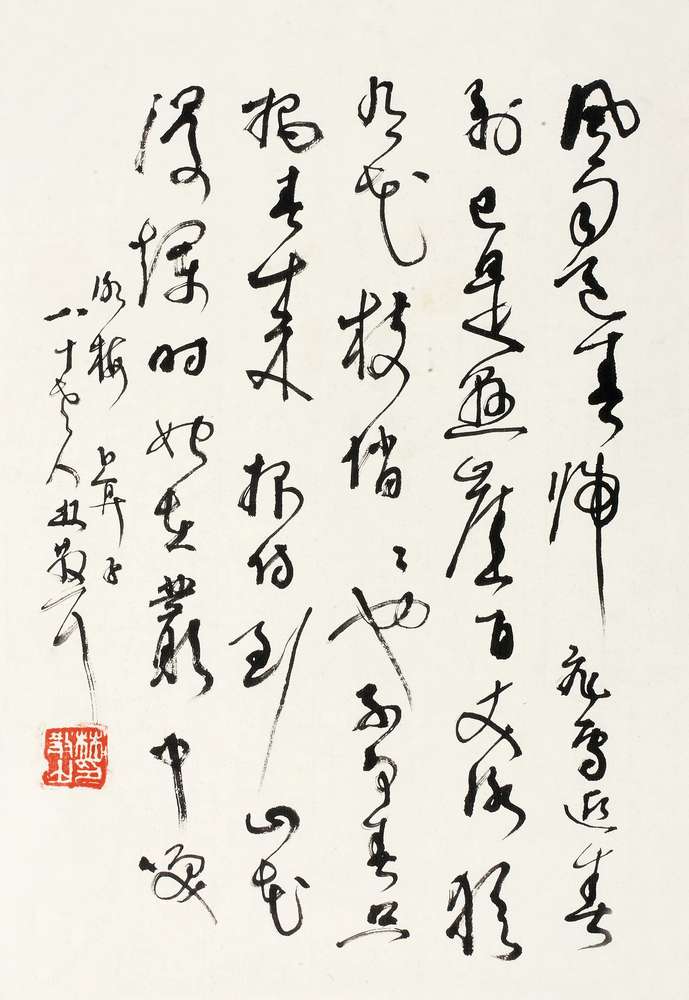 風雨送春歸飛雪迎春
到已是懸崖百丈冰猶
有花枝俏〻也不爭春只
把春來報待到山花
漫爛時她在叢中咲
詠梅 卜算子
八十老人林散耳
林散之印